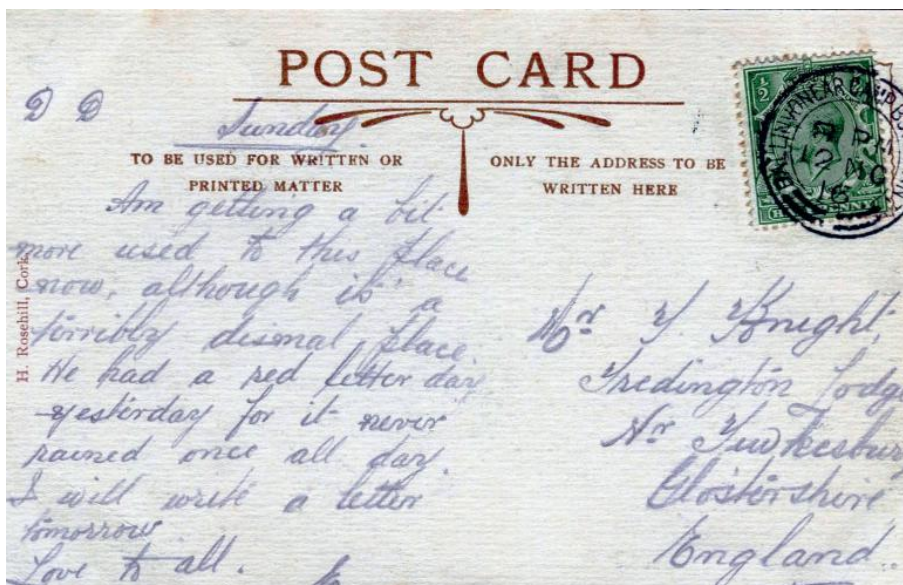 POST CARD
D D
Sunday
TO BE USED FOR WRITTEN OR
PRINTED MATTER
ONLY THE ADDRESS TO BE
WRITTEN HERE
Am getting a bit
more used to this place
now, although is a
torribly dismal place.
He had a red letter day
yesterday for it never
rained once all day.
I will write a letter
tomorrow
Love to all.
H. Rosehill, Cork
Mr Knight,
Tredington Lodge
Nr Tewkesbury
Glostershire
England
½
BALLINVONEAR CAMP
16